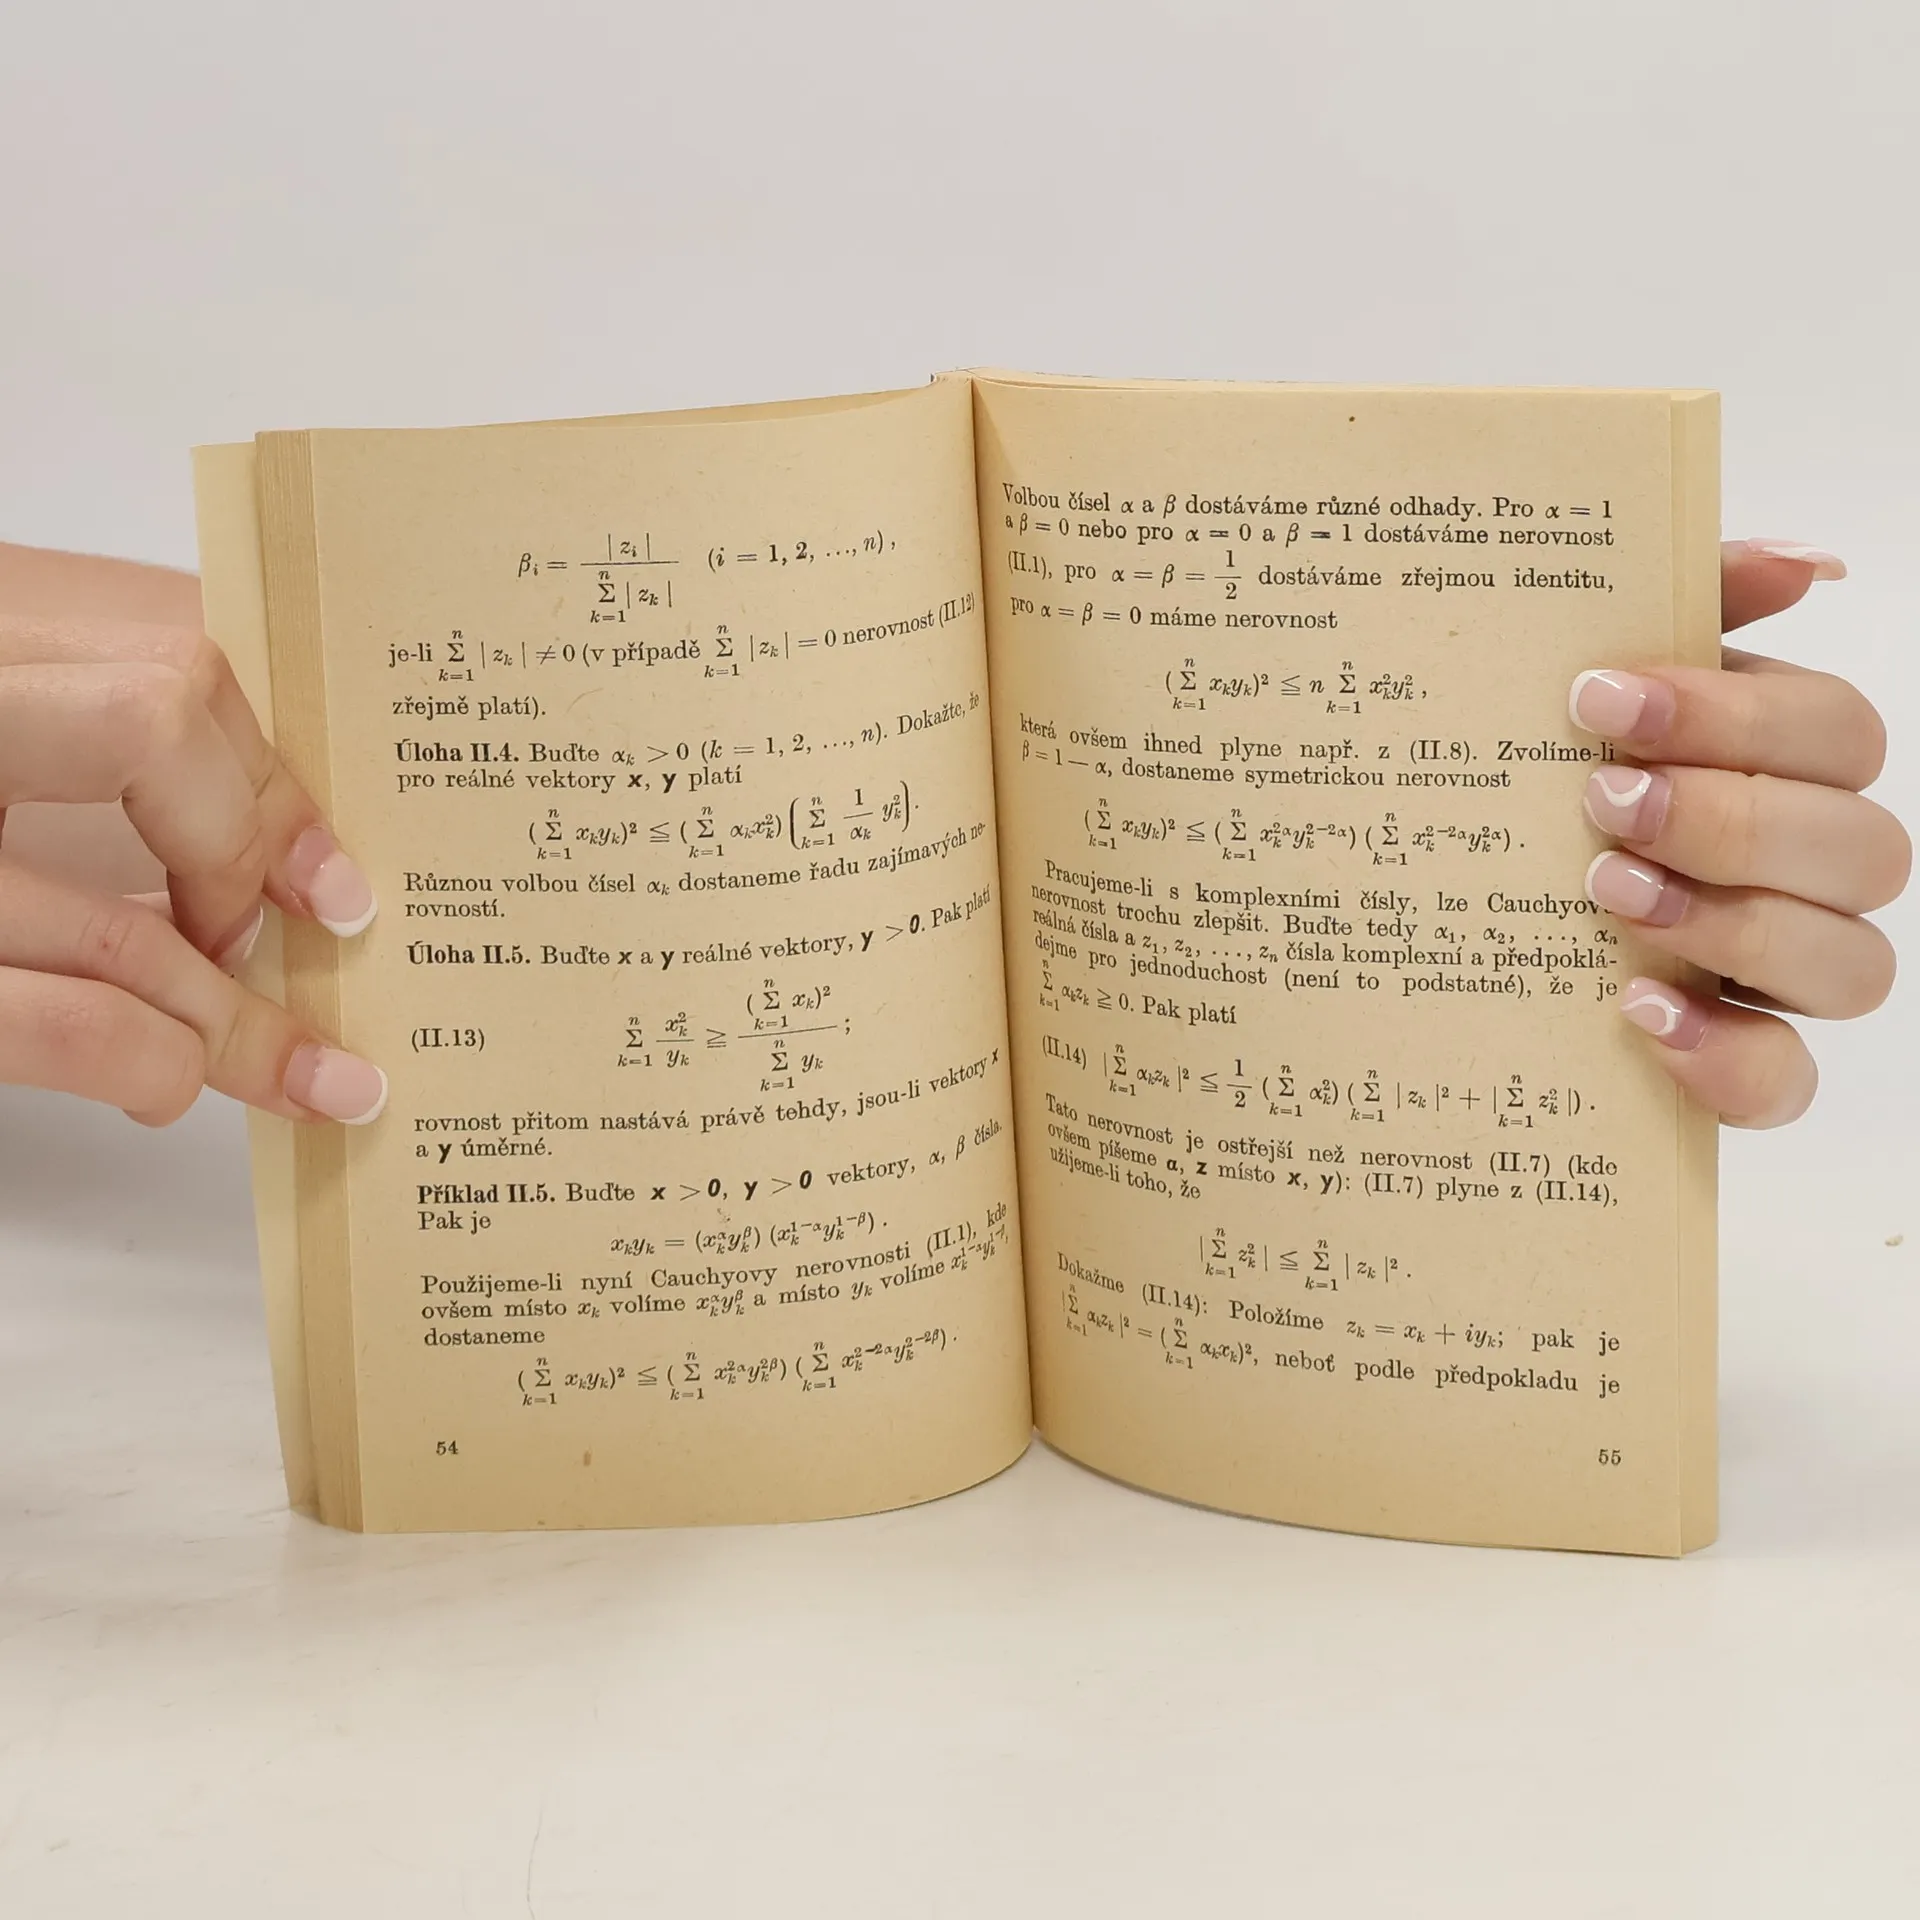 β_i = |z_i| / Σ_{k=1}^{n} |z_k| (i = 1, 2, ..., n),
je-li Σ_{k=1}^{n} |z_k| ≠ 0 (v případě Σ_{k=1}^{n} |z_k| = 0 nerovnost (II.12)
zřejmě platí).
Úloha II.4. Buďte α_k > 0 (k = 1, 2, ..., n). Dokažte, že
pro reálné vektory x, y platí
(Σ_{k=1}^{n} x_k y_k)² ≦ (Σ_{k=1}^{n} α_k x_k²) (Σ_{k=1}^{n} 1/α_k y_k²).
Různou volbou čísel α_k dostaneme řadu zajímavých ne-
rovností.
Úloha II.5. Buďte x a y reálné vektory, y > 0. Pak platí
(II.13) Σ_{k=1}^{n} x_k²/y_k ≧ (Σ_{k=1}^{n} x_k)² / Σ_{k=1}^{n} y_k ;
rovnost přitom nastává právě tehdy, jsou-li vektory x
a y úměrné.
Příklad II.5. Buďte x > 0, y > 0 vektory, α, β čísla.
Pak je
x_k y_k = (x_k^α y_k^β) (x_k^{1−α} y_k^{1−β}) .
Použijeme-li nyní Cauchyovy nerovnosti (II.1), kde
ovšem místo x_k volíme x_k^α y_k^β a místo y_k volíme x_k^{1−α} y_k^{1−β},
dostaneme
(Σ_{k=1}^{n} x_k y_k)² ≦ (Σ_{k=1}^{n} x_k^{2α} y_k^{2β}) (Σ_{k=1}^{n} x_k^{2−2α} y_k^{2−2β}) .
54
Volbou čísel α a β dostáváme různé odhady. Pro α = 1
a β = 0 nebo pro α = 0 a β = 1 dostáváme nerovnost
(II.1), pro α = β = 1/2 dostáváme zřejmou identitu,
pro α = β = 0 máme nerovnost
(Σ_{k=1}^{n} x_k y_k)² ≦ n Σ_{k=1}^{n} x_k² y_k² ,
která ovšem ihned plyne např. z (II.8). Zvolíme-li
β = 1 — α, dostaneme symetrickou nerovnost
(Σ_{k=1}^{n} x_k y_k)² ≦ (Σ_{k=1}^{n} x_k^{2α} y_k^{2−2α}) (Σ_{k=1}^{n} x_k^{2−2α} y_k^{2α}) .
Pracujeme-li s komplexními čísly, lze Cauchyov
nerovnost trochu zlepšit. Buďte tedy α₁, α₂, ..., α_n
reálná čísla a z₁, z₂, ..., z_n čísla komplexní a předpoklá-
dejme pro jednoduchost (není to podstatné), že je
Σ_{k=1}^{n} α_k z_k ≧ 0. Pak platí
(II.14) |Σ_{k=1}^{n} α_k z_k|² ≦ 1/2 (Σ_{k=1}^{n} α_k²) (Σ_{k=1}^{n} |z_k|² + |Σ_{k=1}^{n} z_k²|) .
Tato nerovnost je ostřejší než nerovnost (II.7) (kde
ovšem píšeme α, z místo x, y): (II.7) plyne z (II.14),
užijeme-li toho, že
|Σ_{k=1}^{n} z_k²| ≦ Σ_{k=1}^{n} |z_k|² .
Dokažme (II.14): Položíme z_k = x_k + iy_k; pak je
|Σ_{k=1}^{n} α_k z_k|² = (Σ_{k=1}^{n} α_k x_k)², neboť podle předpokladu je
55